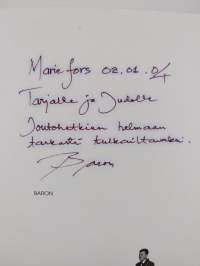 Mariefors 02.01.04
Tarjalle ja Judolle
Joutohetkien helmaan
tarkettä tulkailtavaksi.
Baron
BARON